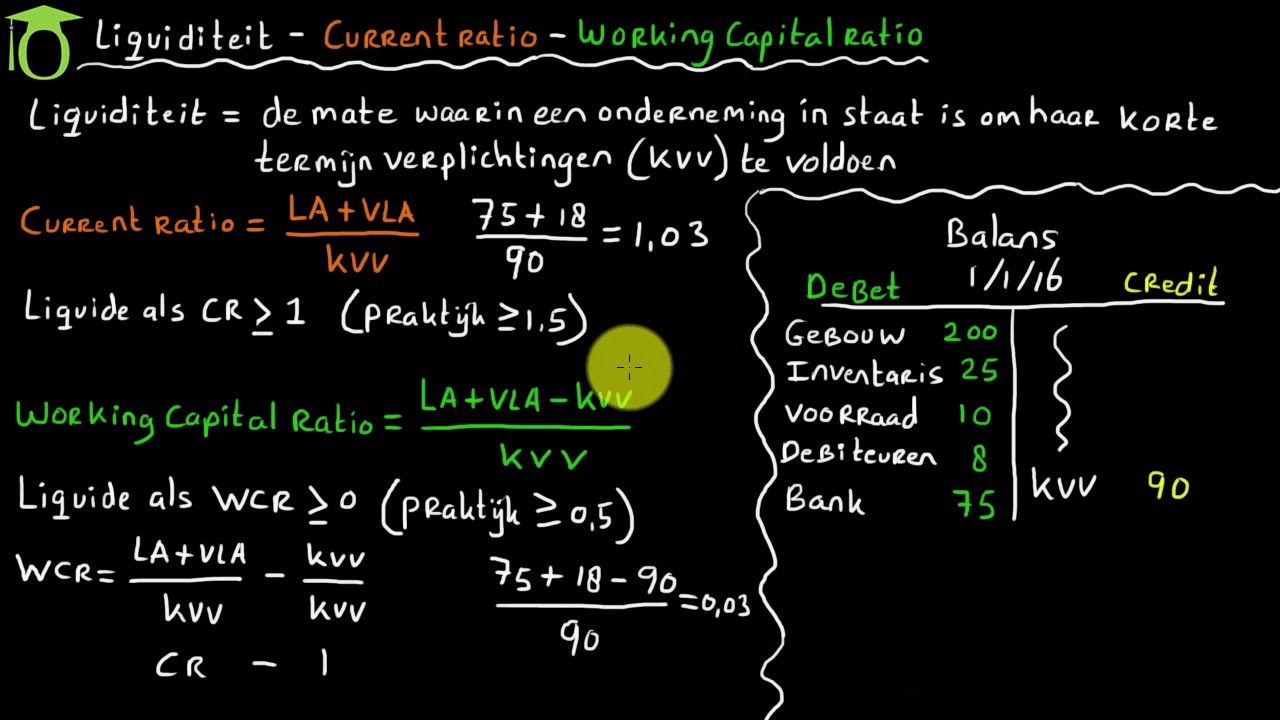 Liquiditeit - Current ratio - Working Capital ratio
Liquiditeit = de mate waarin een onderneming in staat is om haar korte
termijn verplichtingen (kvv) te voldoen
Current ratio = LA + VLA / kvv
75 + 18 / 90 = 1,03
Liquide als CR ≥ 1 (praktijk ≥ 1,5)
Working Capital Ratio = LA + VLA - kvv / kvv
Liquide als WCR ≥ 0 (praktijk ≥ 0,5)
WCR = LA + VLA / kvv - kvv / kvv
CR - 1
75 + 18 - 90 / 90 = 0,03
Balans
1/1/16
Debet Credit
Gebouw 200
Inventaris 25
Voorraad 10
Debiteuren 8
Bank 75
kvv 90